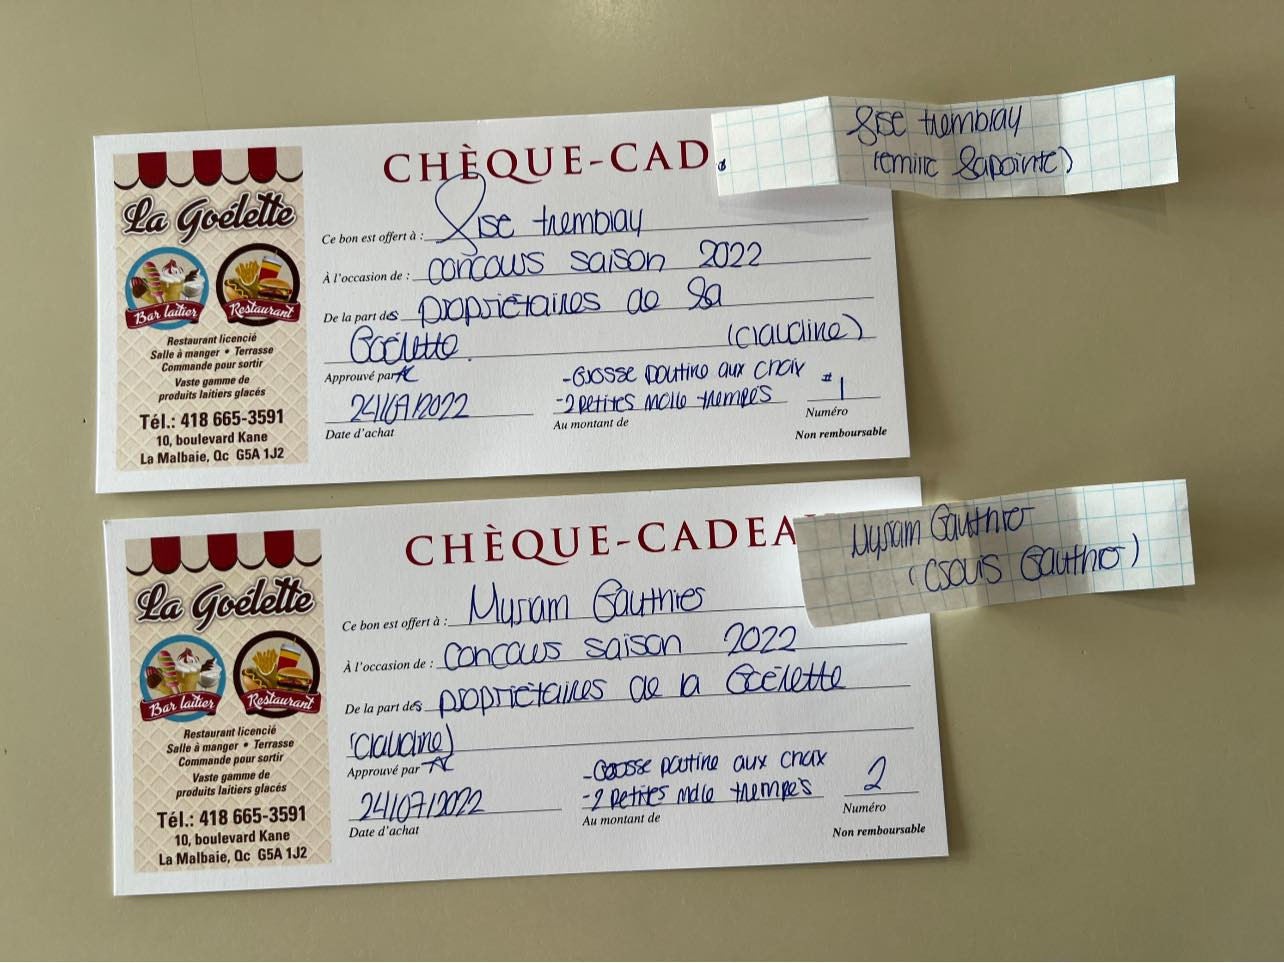 CHÈQUE-CAD
Lise tremblay
(emilie Lapointe)
La Goélette
Bar laitier
Restaurant
Restaurant licencié
Salle à manger • Terrasse
Commande pour sortir
Vaste gamme de
produits laitiers glacés
Tél.: 418 665-3591
10, boulevard Kane
La Malbaie, Qc G5A 1J2
Ce bon est offert à : Lise tremblay
À l'occasion de : concours saison 2022
De la part des propriétaires de La
Goélette. (Claudine)
Approuvé par
24/07/2022
Date d'achat
-Grosse poutine aux choix
-2 petites molle trempés
Au montant de
#1
Numéro
Non remboursable
CHÈQUE-CADEA
Myriam Gauthier
Gauthier)
La Goélette
Bar laitier
Restaurant
Restaurant licencié
Salle à manger • Terrasse
Commande pour sortir
Vaste gamme de
produits laitiers glacés
Tél.: 418 665-3591
10, boulevard Kane
La Malbaie, Qc G5A 1J2
Ce bon est offert à : Myriam Gauthier
À l'occasion de : concours saison 2022
De la part des propriétaires de la Goélette
(Claudine)
Approuvé par
24/07/2022
Date d'achat
-Grosse poutine aux choix
-2 petites molle trempés
Au montant de
2
Numéro
Non remboursable